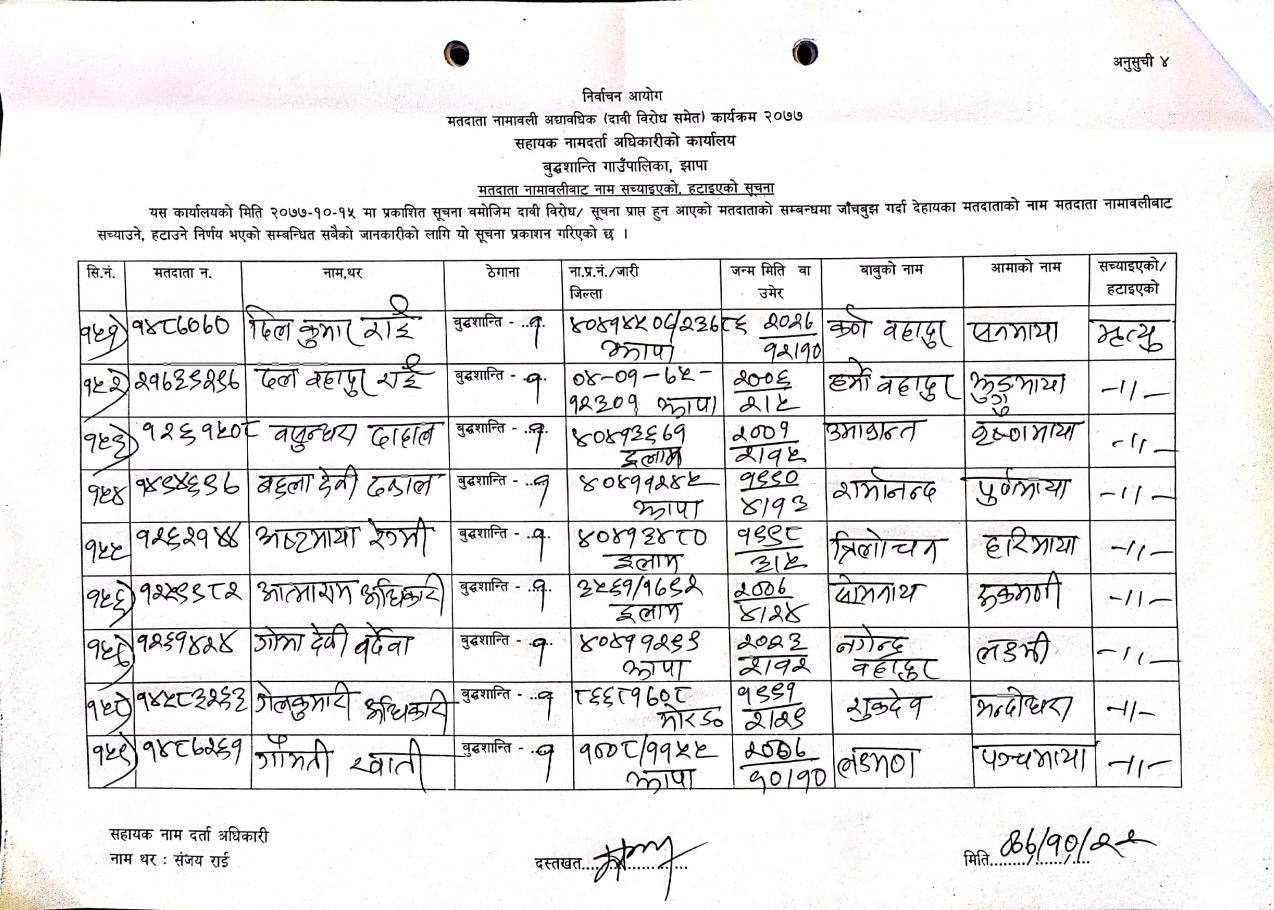 अनुसुची ४
निर्वाचन आयोग
मतदाता नामावली अद्यावधिक (दावी विरोध समेत) कार्यक्रम २०७७
सहायक नामदर्ता अधिकारीको कार्यालय
बुद्धशान्ति गाउँपालिका, झापा
मतदाता नामावलीबाट नाम सच्याइएको, हटाइएको सूचना
यस कार्यालयको मिति २०७७-१०-१५ मा प्रकाशित सूचना वमोजिम दावी विरोध/ सूचना प्राप्त हुन आएको मतदाताको सम्बन्धमा जाँचबुझ गर्दा देहायका मतदाताको नाम मतदाता नामावलीबाट
सच्याउने, हटाउने निर्णय भएको सम्बन्धित सबैको जानकारीको लागि यो सूचना प्रकाशन गरिएको छ ।
सि.नं. मतदाता न. नाम,थर ठेगाना ना.प्र.नं./जारी जिल्ला जन्म मिति वा उमेर बाबुको नाम आमाको नाम सच्याइएको/ हटाइएको
१५१ १४८७०७० दिल कुमार राई बुद्धशान्ति - ..१ झापा २०२७ १२/१० कर्ण वहादुर मृत्यु
१५२ दल वहादुर राई बुद्धशान्ति - ..१ ०४-०१-७५-१२३०१ झापा २००६ २/५ वहादुर -//-
१५३ १२६१५०८ वसुन्धरा दाहाल बुद्धशान्ति - ..१ ४०४१३६७१ इलाम २००१ २/१५ उमाकान्त कृष्णमाया -//-
१५४ १४९४६९७ देवी दाहाल बुद्धशान्ति - ..१ ४०४११२४५ झापा १९९० ४/१३ शर्मानन्द पुर्णमाया -//-
१५५ १२६२१४४ अष्टमाया रेग्मी बुद्धशान्ति - ..१ ४०४१६४८० इलाम १९९८ ३/५ त्रिलोचन हरिमाया -//-
१५६ १२५९९८२ आत्माराम अधिकारी बुद्धशान्ति - ..१ ३५६१/१७९२ इलाम २००६ ४/२४ रुकमणी -//-
१५७ १२६१४२४ गोमा देवी बुद्धशान्ति - ..१ ४०४११२९९ झापा २०२३ २/१२ नगेन्द्र वहादुर लक्ष्मी -//-
१५८ अधिकारी बुद्धशान्ति - ..१ मोरङ १९९१ २/२९ शुकदेव -//-
१५९ १४८७२६१ गोमती खाती बुद्धशान्ति - ..१ १००८/११५५ झापा २००७ १०/१० लक्ष्मण पञ्चमाया -//-
सहायक नाम दर्ता अधिकारी
नाम थर : संजय राई
दस्तखत
मिति ७७/१०/२२